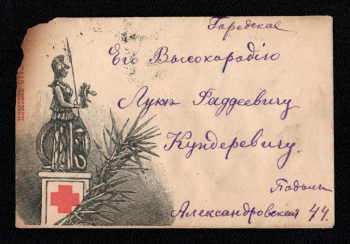 Городское
Его Высокородію
Лукѣ Фаддеевичу
Кундеревичу.
Подолъ
Александровская 44.